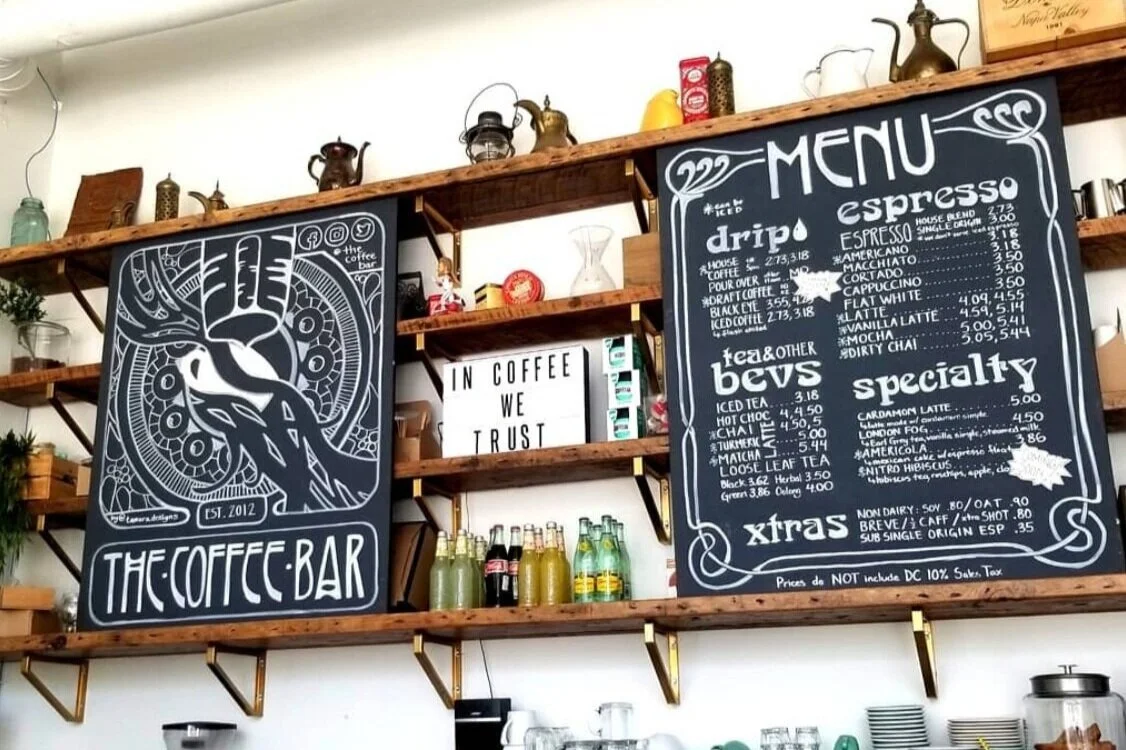 Napa Valley
1981
the
coffee
bar
by @tamora.designs
EST. 2012
THE·COFFEE·BAR
IN COFFEE
WE
TRUST
MENU
*can be
ICED
drip
*HOUSE
COFFEE 2.73, 3.18
POUR OVER
*DRAFT COFFEE
BLACK EYE 3.55,
ICED COFFEE 2.73, 3.18
tea & OTHER
bevs
ICED TEA ... 3.18
HOT CHOC 4, 4.50
*CHAI LATTE 4.50, 5
*TURMERIC 5.00
*MATCHA 5.44
LOOSE LEAF TEA
Black 3.62 Herbal 3.50
Green 3.86 Oolong 4.00
espresso
ESPRESSO HOUSE BLEND 2.73
SINGLE ORIGIN 3.00
*we don't serve iced espresso
*AMERICANO 3.18
MACCHIATO 3.18
CORTADO 3.50
CAPPUCCINO 3.50
FLAT WHITE 3.50
*LATTE 4.09, 4.55
*VANILLA LATTE 4.59, 5.14
*MOCHA 5.00, 5.41
*DIRTY CHAI 5.05, 5.44
specialty
CARDAMOM LATTE 5.00
latte made w/ cardamom simple
LONDON FOG 4.50
Earl Grey tea, vanilla, simple, steamed milk
*AMERICOLA 3.86
mexican coke w/ espresso float
*NITRO HIBISCUS
hibiscus tea, rosehips, apple,
xtras
NON DAIRY: SOY .80/OAT .90
BREVE/½ CAFF/xtra SHOT .80
SUB SINGLE ORIGIN ESP .35
Prices do NOT include DC 10% Sales Tax